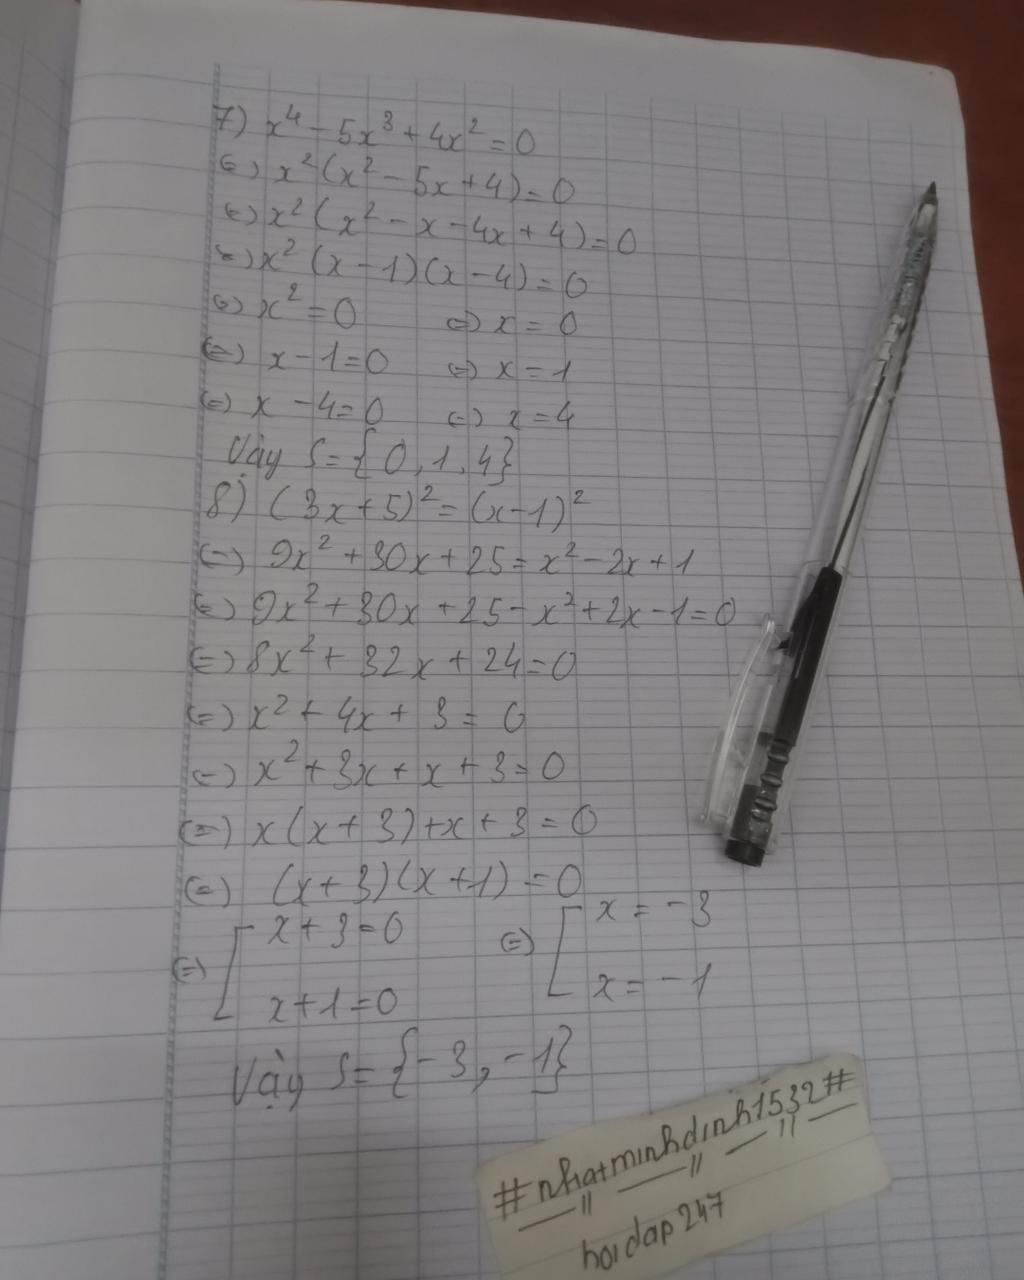 7) x⁴ - 5x³ + 4x² = 0
(=) x² (x² - 5x + 4) = 0
(=) x² (x² - x - 4x + 4) = 0
(=) x² (x - 1) (x - 4) = 0
(=) x² = 0 (=) x = 0
(=) x - 1 = 0 (=) x = 1
(=) x - 4 = 0 (=) x = 4
Vậy S = {0, 1, 4}
8) (3x + 5)² = (x - 1)²
(=) 9x² + 30x + 25 = x² - 2x + 1
(=) 9x² + 30x + 25 - x² + 2x - 1 = 0
(=) 8x² + 32x + 24 = 0
(=) x² + 4x + 3 = 0
(=) x² + 3x + x + 3 = 0
(=) x (x + 3) + x + 3 = 0
(=) (x + 3) (x + 1) = 0
(=) [ x + 3 = 0 (=) [ x = -3
x + 1 = 0 x = -1
Vậy S = {-3, -1}
#nhatminhdinh1532#
hoidap247